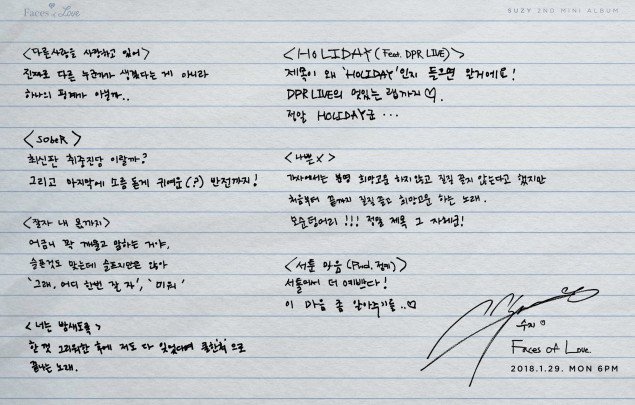 Faces of Love
SUZY 2ND MINI ALBUM
<다른사람을 사랑하고 있어>
진짜로 다른 누군가가 생겼다는 게 아니라
하나의 핑계가 아닐까..
<SObeR>
최신판 취중진담 이랄까?
그리고 마지막에 소름 돋게 귀여운(?) 반전까지!
<잘자 내 몫까지>
어금니 꽉 깨물고 말하는 거야,
슬픈것도 맞는데 슬프지만은 않아
'그래, 어디 한번 잘 자', '미워'
<너는 밤새도록>
한 껏 그리워한 후에 저도 다 잊었다며 쿨한'척'으로
끝나는 노래.
<HOLIDAY (Feat. DPR LIVE)>
제목이 왜 'HOLIDAY'인지 들으면 안거에요!
DPR LIVE의 멋있는 랩까지♡.
정말 HOLIDAY군 ...
<나쁜X>
가사에서는 분명 희망고문 하지 않고 질질 끌지 않는다고 했지만
처음부터 끝까지 질질 끌고 희망고문 하는 노래.
모순덩어리 !!! 정말 제목 그 자체군!
<서툰 마음 (Prod. )>
서툴어서 더 예쁘다!
이 마음 좀 알아주기를..♡
수지
Faces of Love.
2018.1.29. MON 6PM